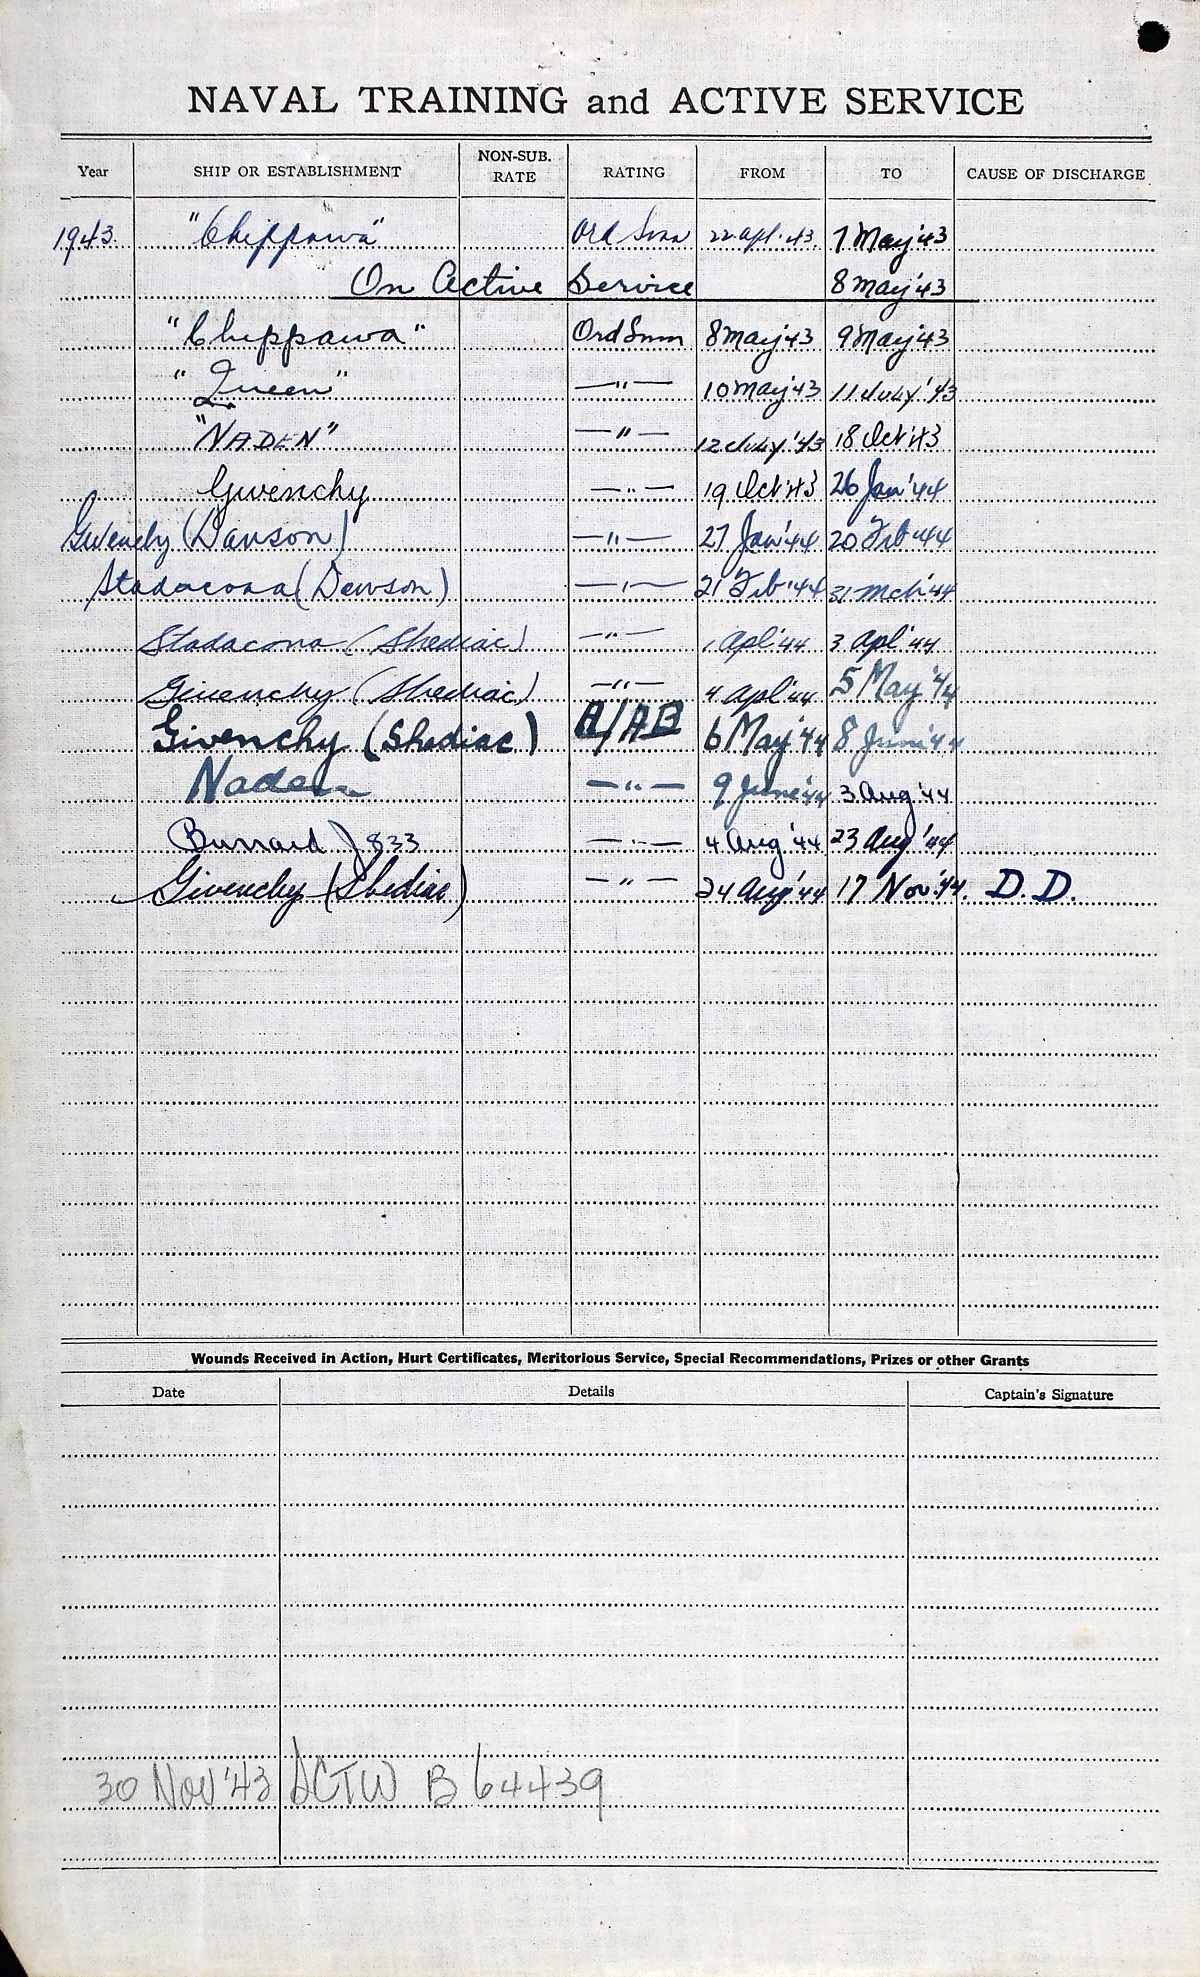 NAVAL TRAINING and ACTIVE SERVICE
Year SHIP OR ESTABLISHMENT NON-SUB. RATE RATING FROM TO CAUSE OF DISCHARGE
1943. "Chippawa" Ord Smn 22 Apl. 43. 7 May '43
On Active Service 8 May '43
"Chippawa" Ord Smn 8 May '43 9 May '43
"Queen" —"— 10 May '43 11 July '43
"NADEN" —"— 12 July '43 18 Oct '43
Givenchy —"— 19 Oct '43 26 Jan '44
Givenchy (Dawson) —"— 27 Jan '44 20 Feb '44
Stadacona (Dawson) —"— 21 Feb '44 31 Mch '44
Stadacona (Shediac) —"— 1 Apl '44 3 Apl '44
Givenchy (Shediac) —"— 4 Apl '44 5 May '44
Givenchy (Shediac) A/AB 6 May '44 8 June '44
Naden —"— 9 June '44 3 Aug '44
Burrard J 833 —"— 4 Aug '44 23 Aug '44
Givenchy (Shediac) —"— 24 Aug '44 17 Nov. '44. D.D.
Wounds Received in Action, Hurt Certificates, Meritorious Service, Special Recommendations, Prizes or other Grants
Date Details Captain's Signature
30 Nov '43 B 64439